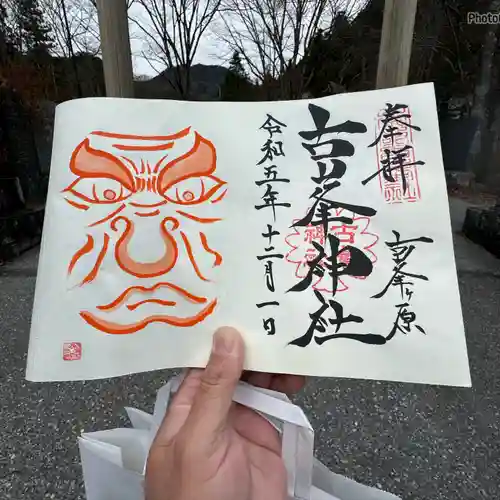 奉拝
古峯ヶ原
古峯神社
令和五年十二月一日
Photo